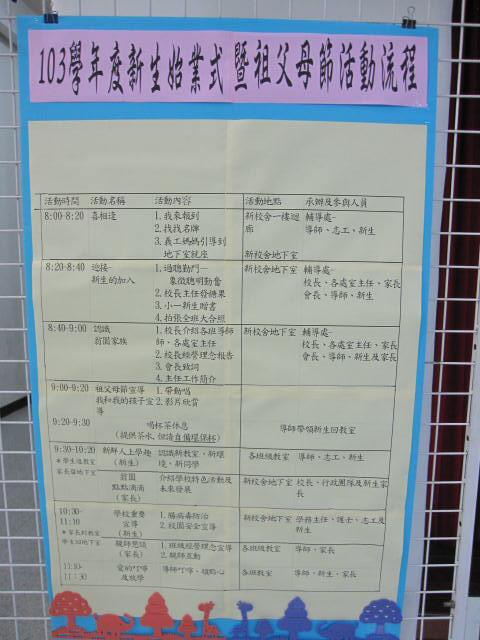 103學年度新生始業式暨祖父母節活動流程
活動時間 活動名稱 活動內容 活動地點 承辦及參與人員
8:00-8:20 喜相逢 1.我來報到 新校舍一樓迴 輔導處-
2.找找名牌 廊 導師、志工、新生
3.義工媽媽引導到
地下室就座 新校舍地下室
8:20-8:40 迎接- 1.過聰勤門— 新校舍地下室 輔導處-
新生的加入 象徵聰明勤奮 校長、各處室主任、家長
2.校長主任發糖果 會長、導師、新生
3.小一新生贈書
4.拍張全班大合照
8:40-9:00 認識 1.校長介紹各班導師 新校舍地下室 輔導處-
翁園家族 師、各處室主任 校長、各處室主任、家長
2.校長經營理念報告 會長、導師、新生及家長
3.會長致詞
4.主任工作簡介
9:00-9:20 祖父母節宣導 1.帶動唱
我和我的孩子宣 2.影片欣賞
導
9:20-9:30 喝杯茶休息 導師帶領新生回教室
(提供茶水,但請自備環保杯)
9:30-10:20 新鮮人上學趣 認識新教室、新環 各班教室 導師、志工、新生
*學生進教室 (新生) 境、新同學
家長留地下室 翁園 介紹學校特色活動及 新校舍地下室 校長、行政團隊及新生家
點點滴滴 未來發展 長
(家長)
10:30- 學校重要 1.腸病毒防治 新校舍地下室 學務主任、護士、志工及
11:10 宣導 2.校園安全宣導 新生
*家長到教室 (新生)
學生回地下室 親師懇談 1.班級經營理念宣導 各班級教室 導師、家長
(家長) 2.親師互動
11:10- 愛的叮嚀 導師叮嚀、領點心 各班教室 導師、新生、家長
11:30 及放學